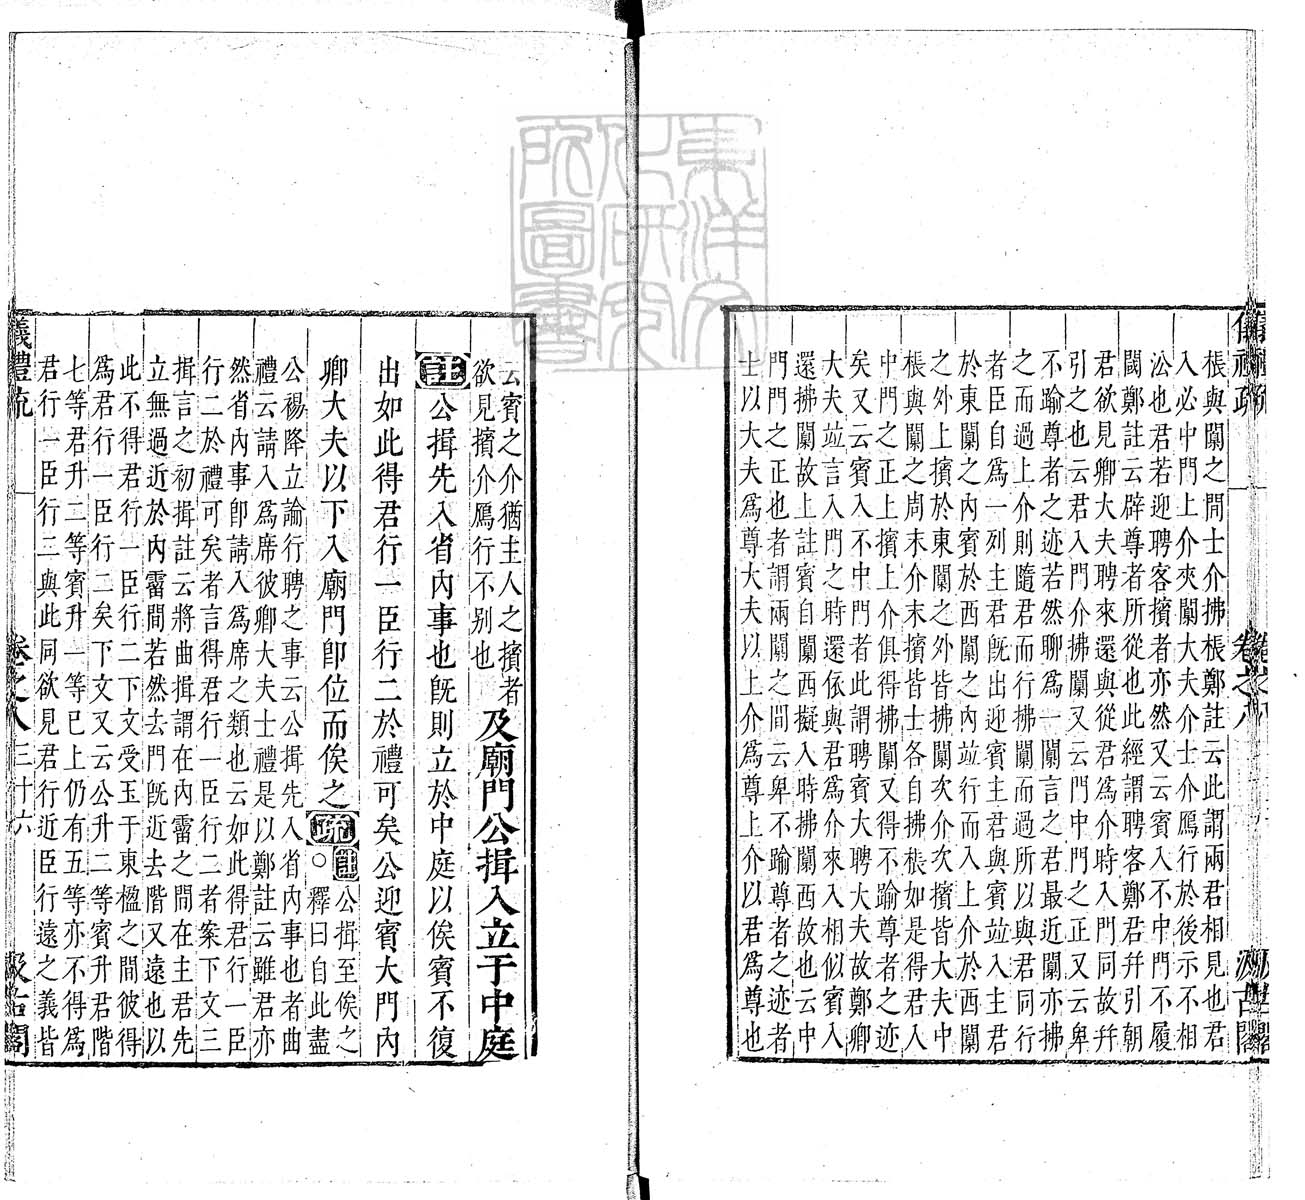 儀禮疏 卷之八 汲古閣
棖與闑之間士介拂棖鄭註云此謂兩君相見也君
入必中門上介夾闑大夫介士介鴈行於後示不相
㳂也君若迎聘客擯者亦然又云賓入不中門不履
閾鄭註云辟尊者所從也此經謂聘客鄭君幷引朝
君欲見卿大夫聘來還與從君爲介時入門同故幷
引之也云君入門介拂闑又云門中門之正又云卑
不踰尊者之迹若然聊爲一闑言之君最近闑亦拂
之而過上介則隨君而行拂闑而過所以與君同行
者臣自爲一列主君旣出迎賓主君與賓竝入主君
於東闑之內賓於西闑之內竝行而入上介於西闑
之外上擯於東闑之外皆拂闑次介次擯皆大夫中
棖與闑之間末介末擯皆士各自拂棖如是得君入
中門之正上擯上介俱得拂闑又得不踰尊者之迹
矣又云賓入不中門者此謂聘賓大聘大夫故鄭卿
大夫竝言入門之時還依與君爲介來入相似賓入
還拂闑故上註賓自闑西擬入時拂闑西故也云中
門門之正也者謂兩闑之間云卑不踰尊者之迹者
士以大夫爲尊大夫以上介爲尊上介以君爲尊也
云賓之介猶主人之擯者
欲見擯介鴈行不别也
及廟門公揖入立于中庭
註公揖先入省內事也旣則立於中庭以俟賓不復
出如此得君行一臣行二於禮可矣公迎賓大門內
卿大夫以下入廟門卽位而俟之
疏註公揖至俟之
○釋曰自此盡
公裼降立論行聘之事云公揖先入省內事也者曲
禮云請入爲席彼卿大夫士禮是以鄭註云雖君亦
然省內事卽請入爲席之類也云如此得君行一臣
行二於禮可矣者言得君行一臣行二者案下文三
揖言之初揖註云將曲揖謂在內霤之間在主君先
立無過近於內霤間若然去門旣近去階又遠也以
此不得君行一臣行二下文受玉于東楹之間彼得
爲君行一臣行二矣下文又云公升二等賓升君階
七等君升二等賓升一等已上仍有五等亦不得爲
君行一臣行二與此同欲見君行近臣行遠之義皆
儀禮疏 卷之八 三十六 汲古閣
東洋文化研究所圖書